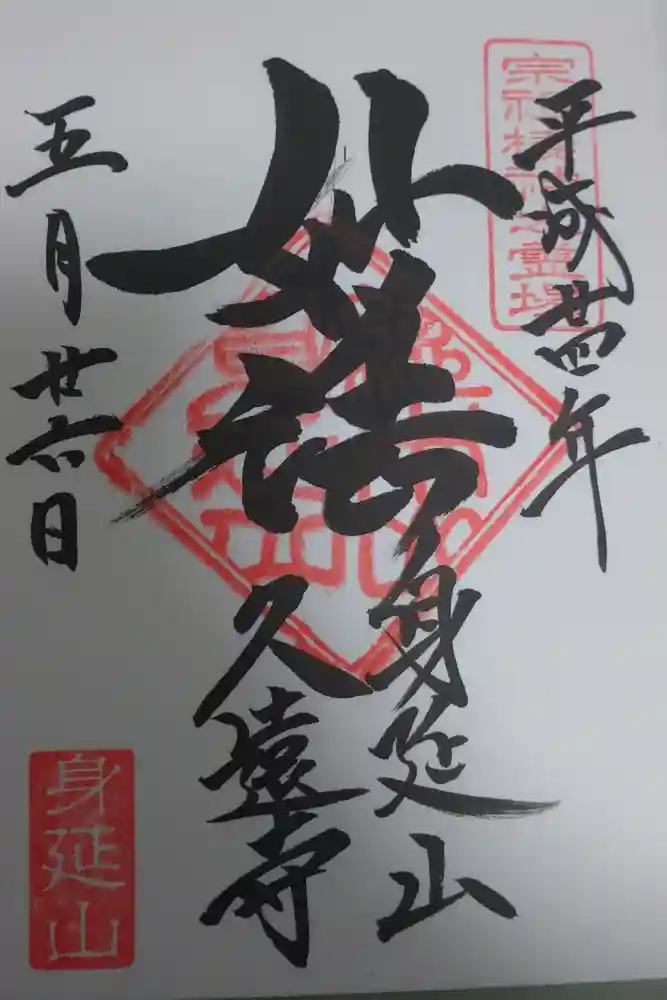 平成廿四年
宗祖棲神之霊場
妙法
身延山
久遠寺
五月廿六日
身延山